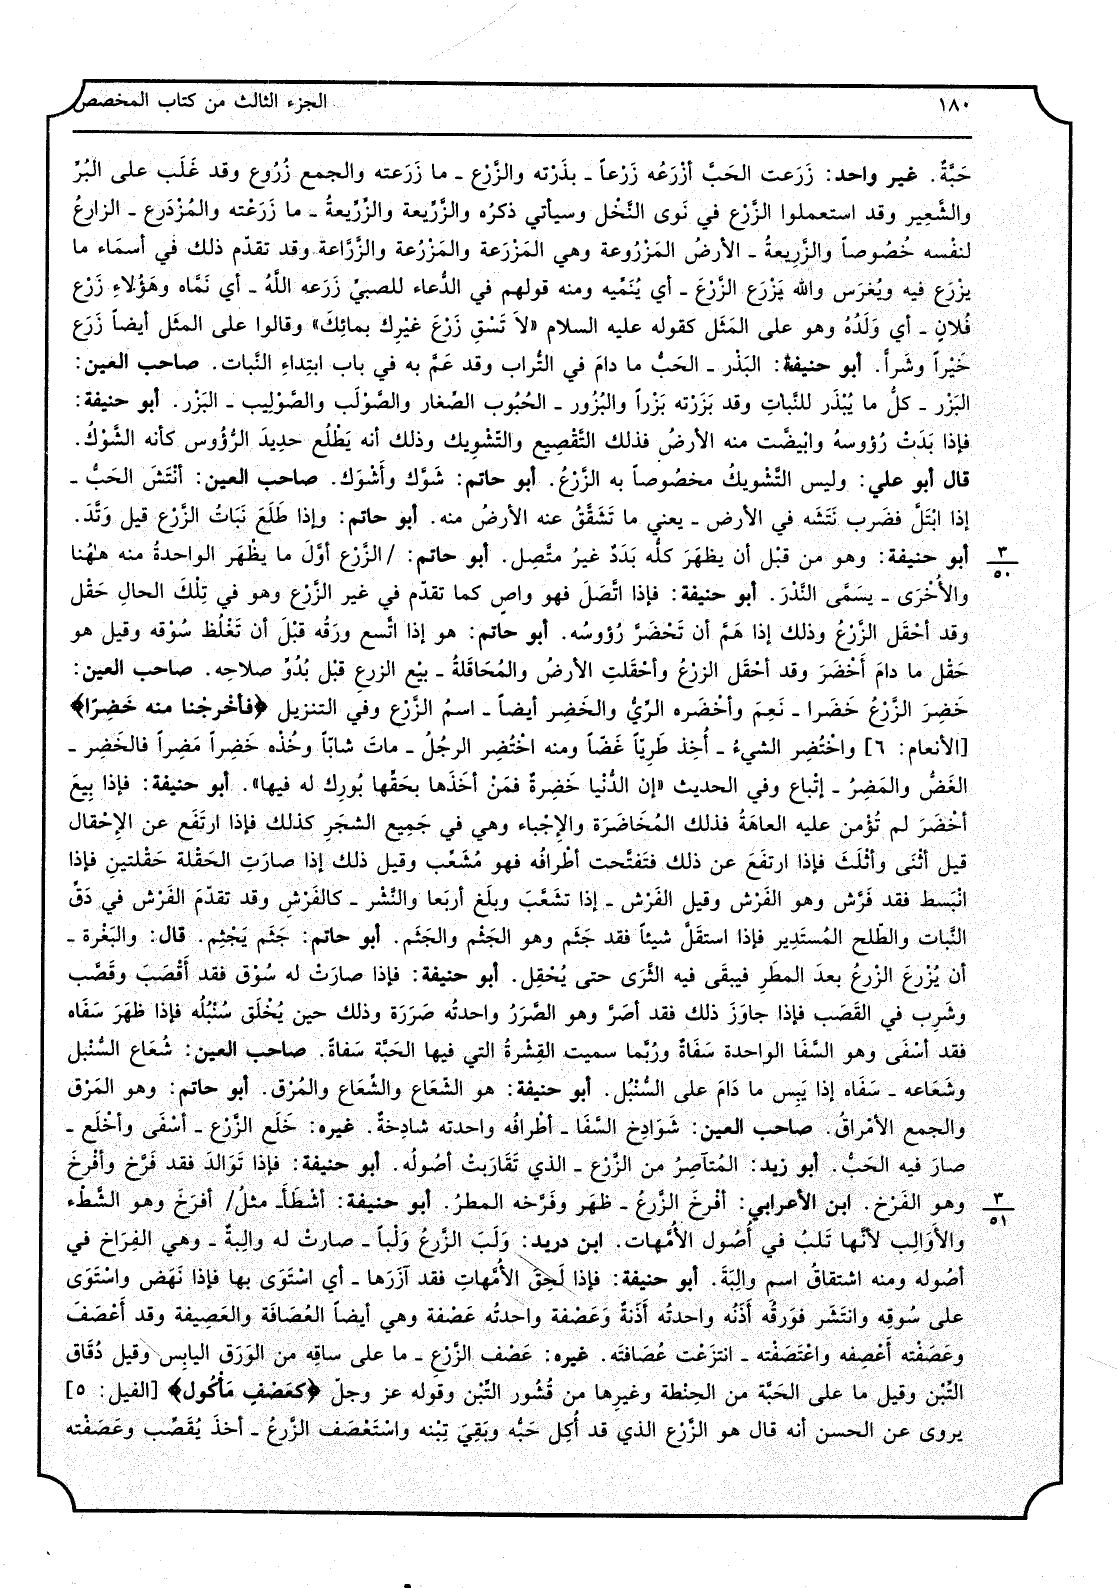 ١٨٠
الجزء الثالث من كتاب المخصص
حَبَّةٌ. غير واحد: زَرَعت الحَبَّ أزْرَعُه زَرْعاً ـ بذَرْته والزَّرْع ـ ما زَرَعته والجمع زُرُوع وقد غَلَب على البُرِّ
والشَّعِير وقد استعملوا الزَّرْع في نَوى النَّخْل وسيأتي ذكرُه والزَّرِّيعة والزِّرِّيعةُ ـ ما زَرَعْته والمُزْدَرِع ـ الزارِعُ
لنفْسه خُصُوصاً والزَّرِيعةُ ـ الأرضُ المَزْرُوعة وهي المَزْرَعة والمَزْرُعة والزَّرَّاعة وقد تقدّم ذلك في أسمَاء ما
يزْرَع فيه ويُغرَس والله يَزْرَع الزَّرْعَ ـ أي يُنَمِّيه ومنه قولهم في الدُّعاء للصبيِّ زَرَعه اللَّهُ ـ أي نَمَّاه وهَؤُلاءِ زَرْع
فُلانٍ ـ أي وَلَدُهُ وهو على المَثَل كقوله عليه السلام «لاَ تَسْقِ زَرْعَ غَيْرِك بمائِكَ» وقالوا على المثَل أيضاً زَرَع
خَيْراً وشَراً. أبو حنيفة: البَذْر ـ الحَبُّ ما دامَ في التُّراب وقد عَمَّ به في باب ابتِداءِ النَّبات. صاحب العين:
البَزْر ـ كلُّ ما يُبْذَر للنَّباتِ وقد بَزَرْته بَزْراً والبُزُور ـ الحُبُوب الصِّغار والصَّوْلَب والصَّوْلِيب ـ البَزْر. أبو حنيفة:
فإذا بَدَتْ رُؤوسهُ وابْيضَّت منه الأرضُ فذلك التَّقْصِيع والتَّشْوِيك وذلك أنه يَطْلُع حدِيدَ الرُّؤُوس كأنه الشَّوْكُ.
قال أبو علي: وليس التَّشْوِيكُ مخصُوصاً به الزَّرْعُ. أبو حاتم: شَوَّك وأَشْوَك. صاحب العين: أنْتَشَ الحَبُّ ـ
إذا ابْتَلَّ فضَرب نَتَشَه في الأرض ـ يعني ما تَشَقَّقُ عنه الأرضُ منه. أبو حاتم: وإذا طَلَعَ نَبَاتُ الزَّرْع قيل وَتَّدَ.
أبو حنيفة: وهو من قبْل أن يظهَرَ كلُّه بَدَدٌ غيرُ متَّصِل. أبو حاتم: /الزَّرْع أوَّلَ ما يظْهَر الواحدةُ منه هٰهُنا
والأُخْرَى ـ يسَمَّى النَّدْرَ. أبو حنيفة: فإذا اتَّصَلَ فهو واصٍ كما تقدّم في غير الزَّرْع وهو في تِلْكَ الحالِ حَقْل
وقد أحْقَل الزَّرْعُ وذلك إذا هَمَّ أن تَخْضَرَّ رُؤوسُه. أبو حاتم: هو إذا اتَّسع ورَقُه قبْلَ أن تَغْلُظ سُوْقه وقيل هو
حَقْل ما دامَ أَخْضَرَ وقد أحْقَل الزرْعُ وأحْقَلتِ الأرضُ والمُحَاقَلةُ ـ بيْع الزرعِ قبْل بُدُوِّ صلاحِه. صاحب العين:
خَضِرَ الزَّرْعُ خَضَرا ـ نَعِمَ وأخْضَره الرِّيُّ والخَضِر أيضاً ـ اسمُ الزَّرْع وفي التنزيل ﴿فأخرجْنا منه خَضِرًا﴾
[الأنعام: ٦] واخْتُضِر الشيءُ ـ أُخِذ طَرِيّاً غَضّاً ومنه اخْتُضِر الرجلُ ـ ماتَ شابّاً وخُذْه خَضِراً مَضِراً فالخَضِر ـ
الغَضُّ والمَضِرُ ـ إتْباع وفي الحديث «إن الدُّنْيا خَضِرةٌ فمَنْ أخَذَها بحَقِّها بُورِك له فيها». أبو حنيفة: فإذا بِيعَ
أخْضَرَ لم تُؤْمن عليه العاهَةُ فذلك المُخَاضَرَة والإجْباء وهي في جَمِيع الشجَرِ كذلك فإذا ارتَفَع عن الإحْقال
قيل أثْنَى وأثْلَثَ فإذا ارتفَعَ عن ذلك فتَفتَّحت أطْرافُه فهو مُشَعِّب وقيل ذلك إذا صارَتِ الحَقْلة حَقْلتينِ فإذا
انْبَسط فقد فَرَّش وهو الفَرْش وقيل الفَرْش ـ إذا تشَعَّبَ وبلَغ أربَعا والنَّشْر ـ كالفَرْشِ وقد تقدّمَ الفَرْش في دَقِّ
النَّبات والطَّلح المُستَدِير فإذا استقَلَّ شيئاً فقد جَثَم وهو الجَثْم والجَثَم. أبو حاتم: جَثَم يَجْثِم. قال: والبَغْرة ـ
أن يُزْرعَ الزرعُ بعدَ المطَرِ فيبقَى فيه الثَّرَى حتى يُحْقِل. أبو حنيفة: فإذا صارَتْ له سُوْق فقد أَقْصَبَ وقَصَّب
وشَرِب في القَصَب فإذا جاوَزَ ذلك فقد أصَرَّ وهو الصَّرَرُ واحدتُه صَرَرَة وذلك حين يُخْلَق سُنْبُلُه فإذا ظهَرَ سَفَاه
فقد أسْفَى وهو السَّفَا الواحدة سَفَاةٌ ورُبَّما سميت القِشْرةُ التي فيها الحَبَّة سَفاةً. صاحب العين: شُعَاع السُّنْبل
وشَعَاعه ـ سَفَاه إذا يَبِس ما دَامَ على السُّنْبُل. أبو حنيفة: هو الشّعَاع والشِّعَاع والمُرْق. أبو حاتم: وهو المَرْق
والجمع الأمْراقُ. صاحب العين: شَوَادِخ السَّفَا ـ أطْرافُه واحدته شادِخةٌ. غيره: خَلَع الزَّرْع ـ أسْفَى وأخْلَع ـ
صارَ فيه الحَبُّ. أبو زيد: المُتآصِرُ من الزَّرْع ـ الذي تَقَارَبتْ أصُولُه. أبو حنيفة: فإذا تَوَالدَ فقد فَرَّخ وأفْرخَ
وهو الفَرْخ. ابن الأعرابي: أفْرخَ الزَّرعُ ـ ظهَر وفَرَّخه المطرُ. أبو حنيفة: أشْطَأَـ مثلُ/ أفرَخَ وهو الشَّطْء
والأوَالِب لأنَّها تَلبُ في أُصُول الأُمَّهات. ابن دريد: وَلَبَ الزَّرعُ وَلْباً ـ صارتْ له والِبةٌ ـ وهي الفِرَاخ في
أصُوله ومنه اشتقاقُ اسم والِبَةَ. أبو حنيفة: فإذا لَحِقَ الأُمَّهاتِ فقد آزَرَها ـ أي اسْتَوَى بها فإذا نَهَض واسْتَوَى
على سُوقِه وانتَشَر فوَرقُه أَذَنُه واحدتُه أَذَنةٌ وَعَصْفة واحدتُه عَصْفة وهي أيضاً العُصَافَة والعَصِيفة وقد أَعْصَفَ
وعَصَفْته أَعْصِفه واعْتَصَفْته ـ انتزَعْت عُصَافتَه. غيره: عَصْف الزَّرْعِ ـ ما على ساقِه من الوَرَق اليابِس وقيل دُقَاق
التِّبْن وقيل ما على الحَبَّة من الحِنْطة وغيرها من قُشُور التِّبْن وقوله عز وجلّ ﴿كعَصْفٍ مَأكُول﴾ [الفيل: ٥]
يروى عن الحسن أنه قال هو الزَّرْع الذي قد أُكِل حَبُّه وبَقِيَ تِبْنه واسْتَعْصَف الزَّرعُ ـ أخذَ يُقَصِّب وعَصَفْته
٣
٥٠
٣
٥١